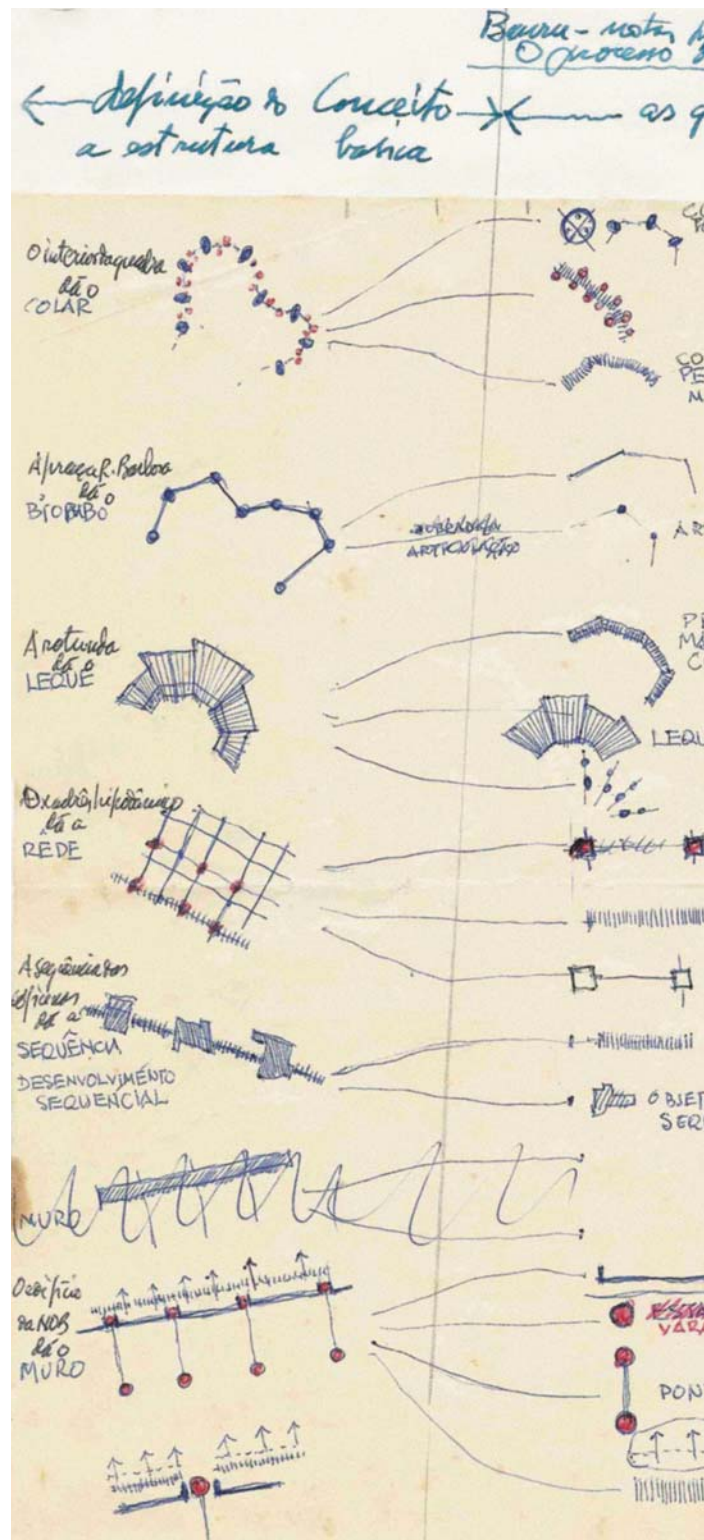 Bauru - notas
O processo
definição do Conceito
as
a estrutura basica
O interior da quadra
dá o
COLAR
CO
PE
M
A praça R. Barbosa
dá o
BIOBABO
ARTICULAÇÃO
AR
A rotunda
dá o
LEQUE
PE
MA
C
LEQU
O xadrês hipodâmico
dá a
RÊDE
A sequência dos
edifícios
dá a
SEQUÊNCIA
DESENVOLVIMENTO
SEQUENCIAL
OBJET
SEQU
MURO
O edifício
da NOB
dá o
MURO
VARA
PONT